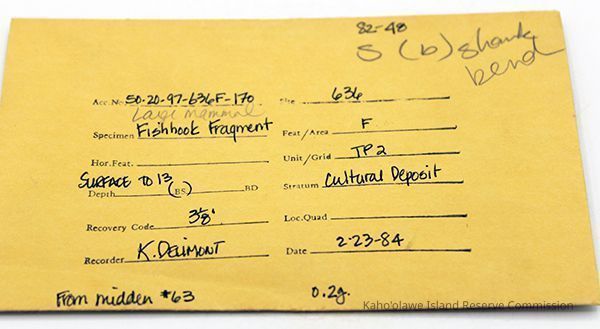 82-48
S (b) shank
bend
Acc. No. 50-20-97-636F-170 Site 636
Large mammal
Specimen Fishhook Fragment Feat/Area F
Hor.Feat. Unit/Grid TP2
SURFACE TO 13
Depth (BS) BD Stratum Cultural Deposit
Recovery Code 3 1/8" Loc.Quad
Recorder K. DELIMONT Date 2-23-84
From midden #63 0.2g.
Kaho'olawe Island Reserve Commission